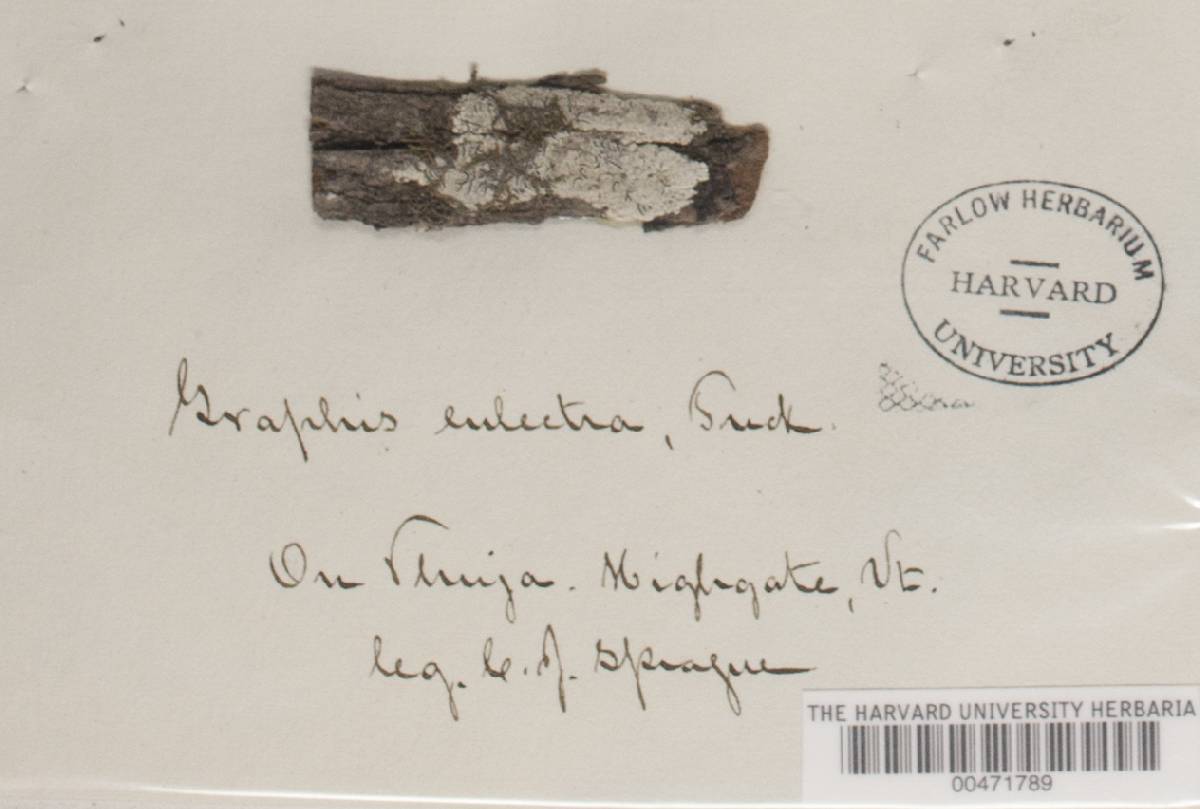 FARLOW HERBARIUM
HARVARD
UNIVERSITY
Graphis eulectra, Tuck.
On Thuja. Highgate, Vt.
leg. C. J. Sprague
THE HARVARD UNIVERSITY HERBARIA
00471789